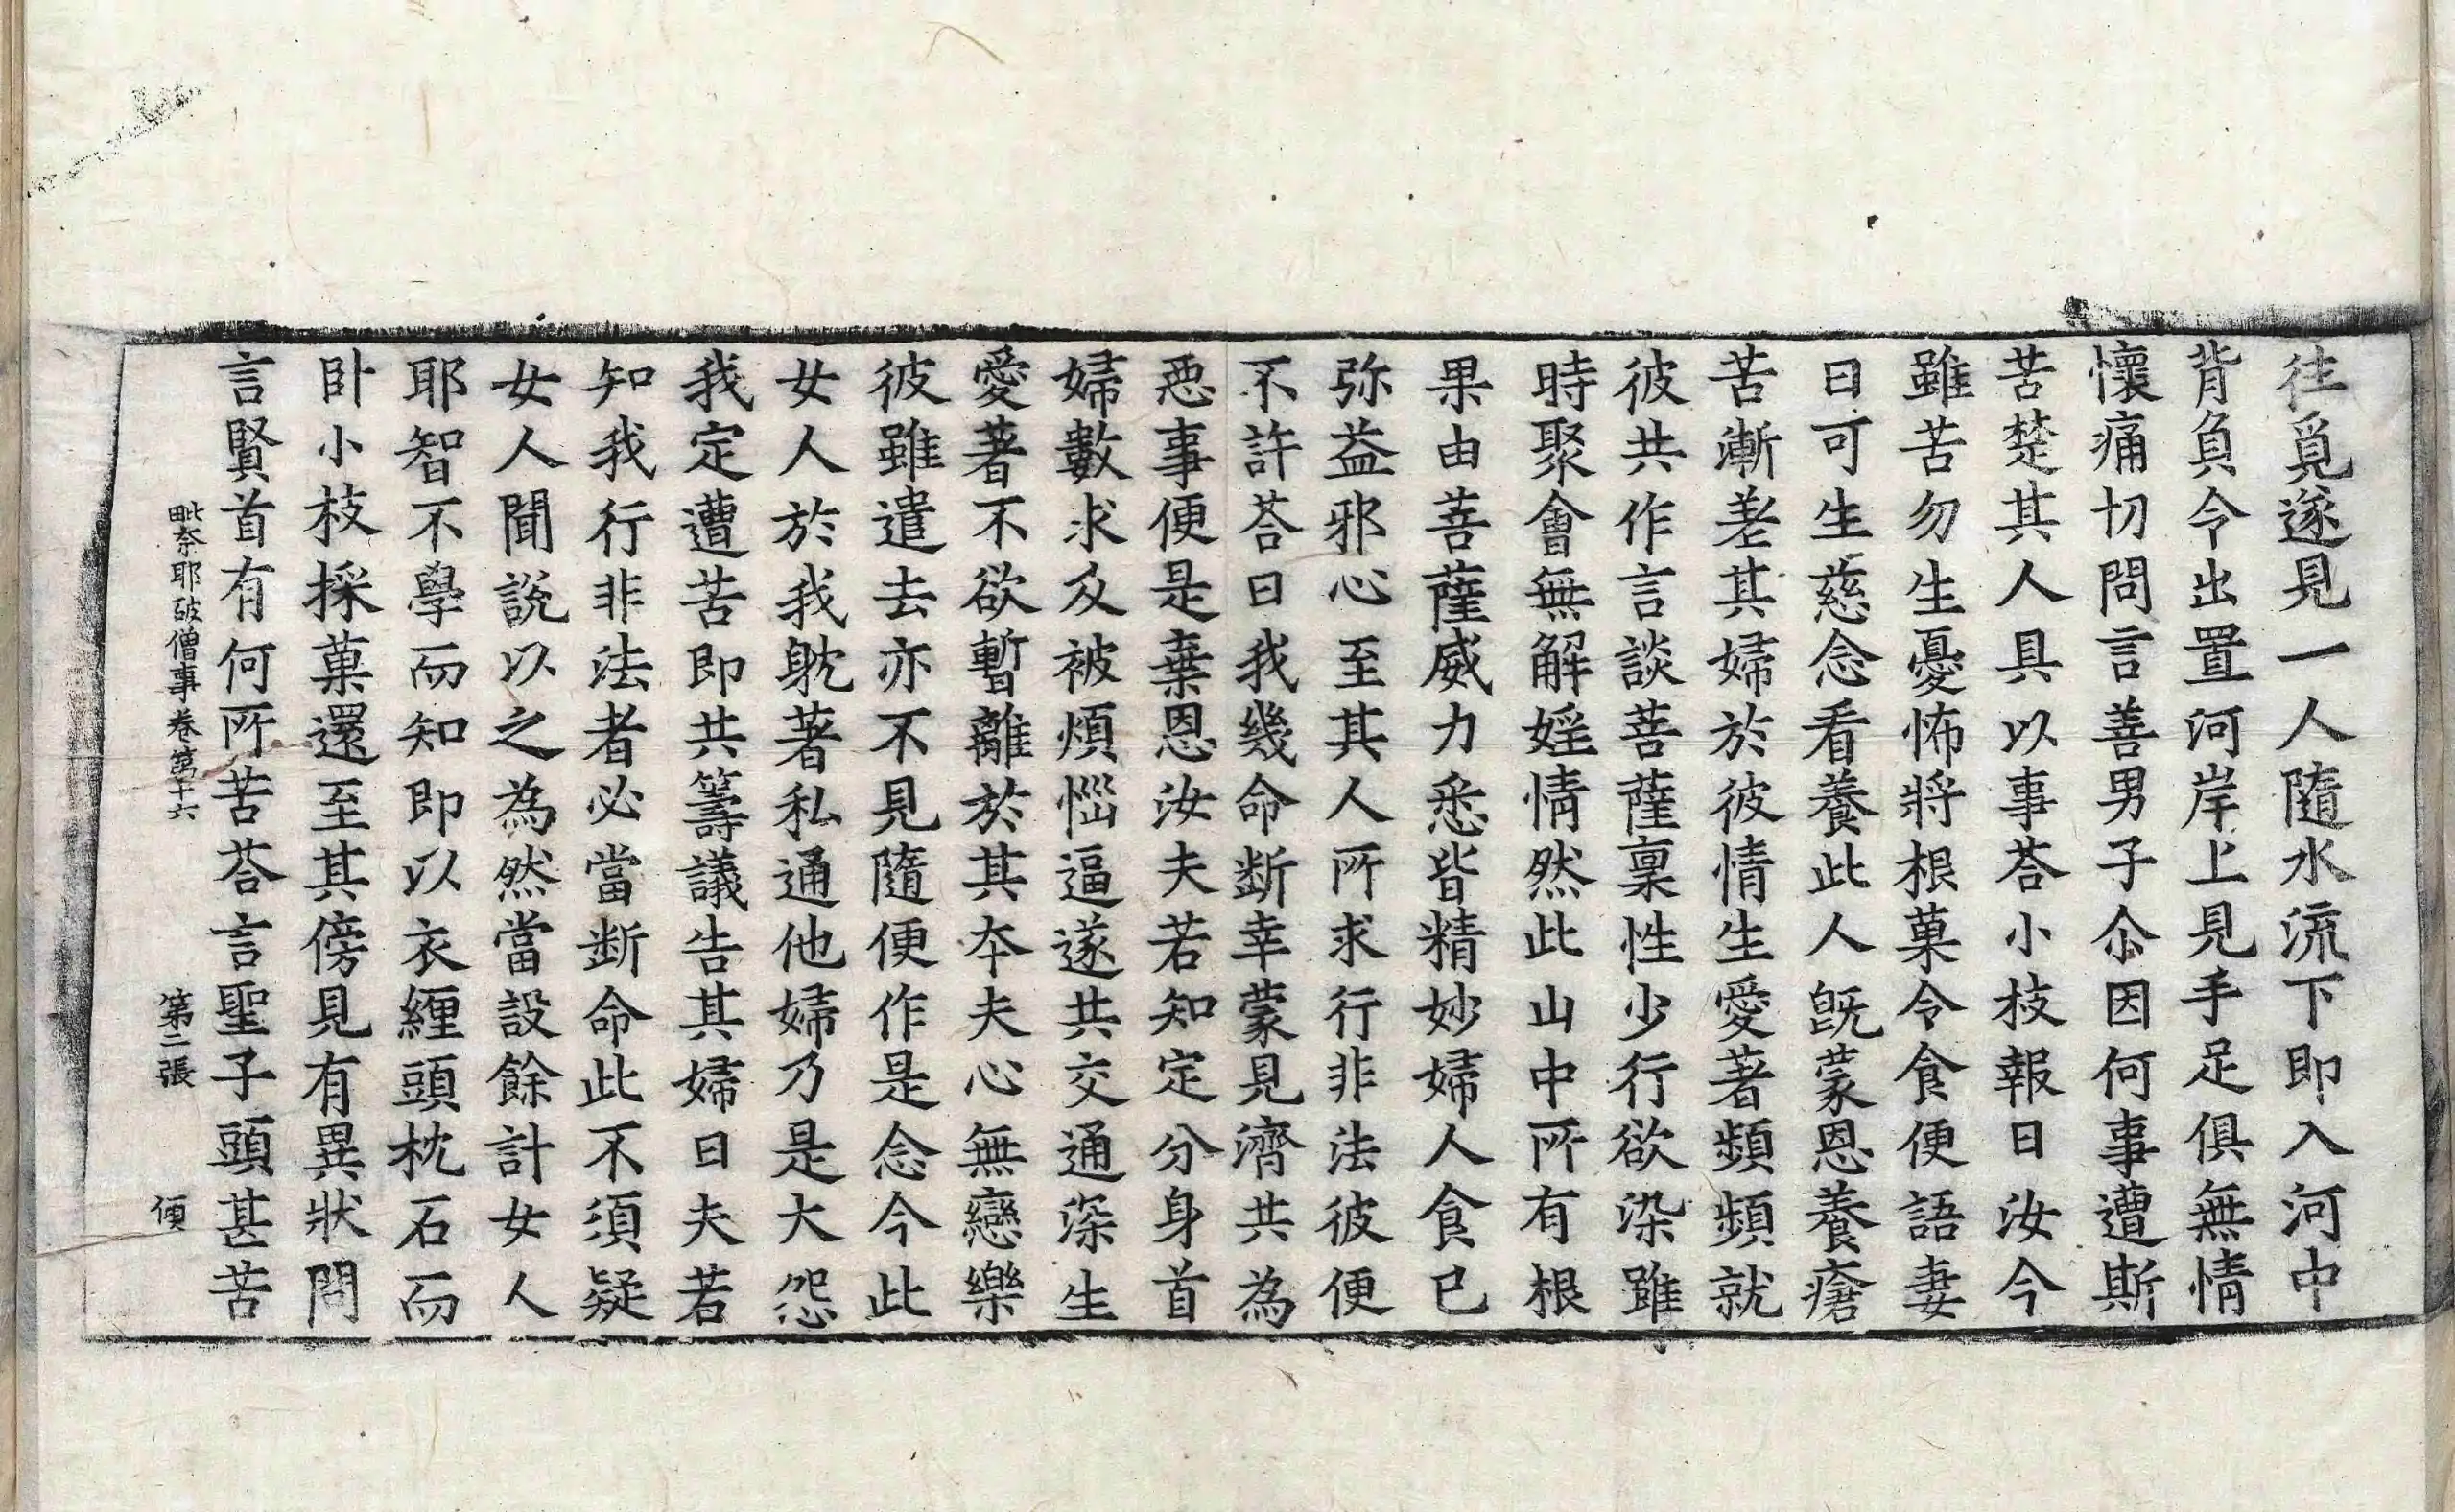 往覓遂見一人隨水流下即入河中
背負令出置河岸上見手足俱無情
懷痛切問言善男子尒因何事遭斯
苦楚其人具以事荅小枝報曰汝今
雖苦勿生憂怖將根菓令食便語妻
曰可生慈念看養此人旣蒙恩養瘡
苦漸差其婦於彼情生愛著頻頻就
彼共作言談菩薩稟性少行欲染雖
時聚會無解婬情然此山中所有根
果由菩薩威力悉皆精妙婦人食已
弥益邪心至其人所求行非法彼便
不許荅曰我幾命断幸蒙見濟共為
惡事便是棄恩汝夫若知定分身首
婦數求及被煩惱逼遂共交通深生
愛著不欲暫離於其夲夫心無戀樂
彼雖遣去亦不見隨便作是念今此
女人於我躭著私通他婦乃是大怨
我定遭苦即共籌議告其婦曰夫若
知我行非法者必當断命此不須疑
女人聞說以之為然當設餘計女人
耶智不學而知即以衣纏頭枕石而
卧小枝採菓還至其傍見有異狀問
言賢首有何所苦荅言聖子頭甚苦
毗奈耶破僧事卷第十六 第二張 傾